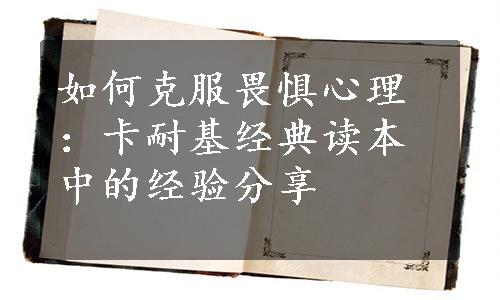 如何克服畏惧心理
：卡耐基经典读本
中的经验分享